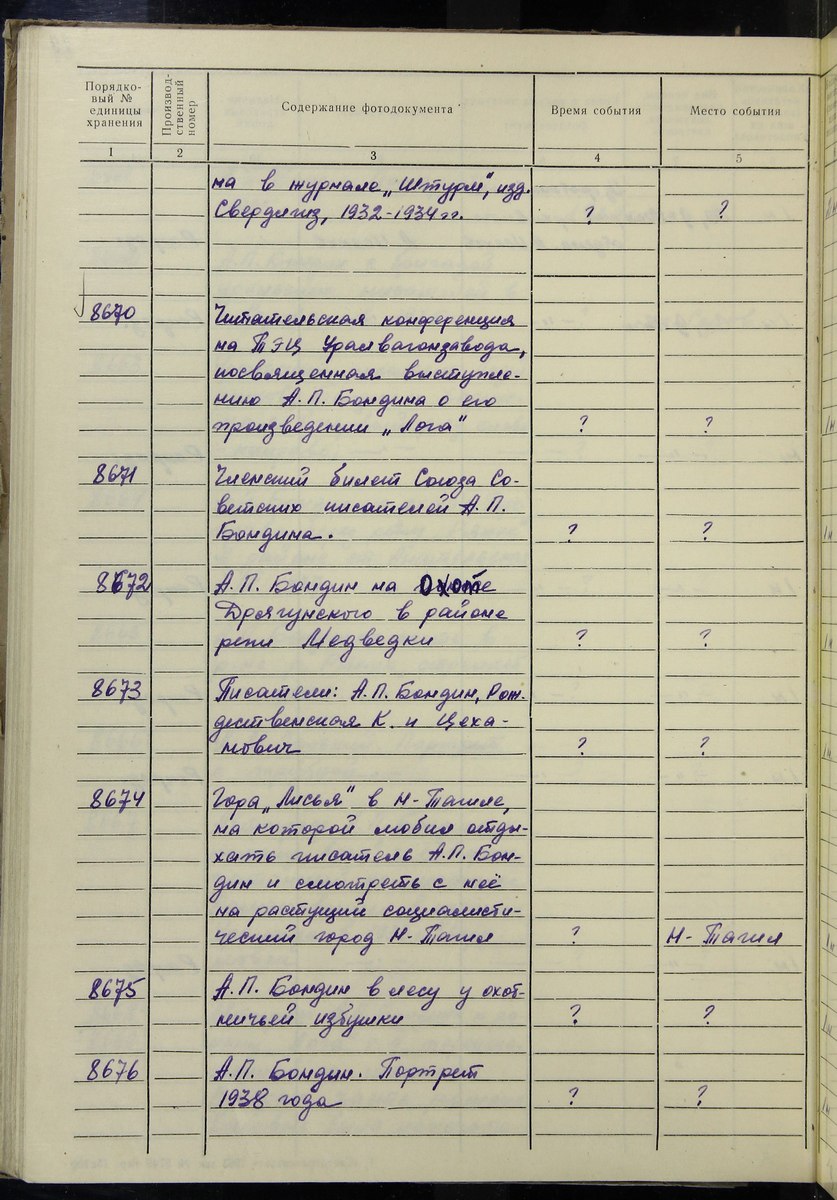 Порядко-
вый №
единицы
хранения
Производ-
ственный
номер
Содержание фотодокумента
Время события
Место события
1
2
3
4
5
на в журнале „Штурм", изд.
Свердлгиз, 1932-1934 гг. ? ?
8670 Читательская конференция
на ТЭЦ Уралвагонзавода,
посвященная выступле-
нию А.П. Бондина о его
произведении „Лога" ? ?
8671 Членский билет Союза Со-
ветских писателей А.П.
Бондина. ? ?
8672 А.П. Бондин на Охоте
Дрягунского в районе
реки Медведки ? ?
8673 Писатели: А.П. Бондин, Рож-
дественская К. и Цеха-
нович ? ?
8674 Гора „Лисья" в Н-Тагиле,
на которой любил отды-
хать писатель А.П. Бон-
дин и смотреть с неё
на растущий социалисти-
ческий город Н-Тагил ? Н-Тагил
8675 А.П. Бондин в лесу у охот-
ничьей избушки ? ?
8676 А.П. Бондин. Портрет
1938 года ? ?